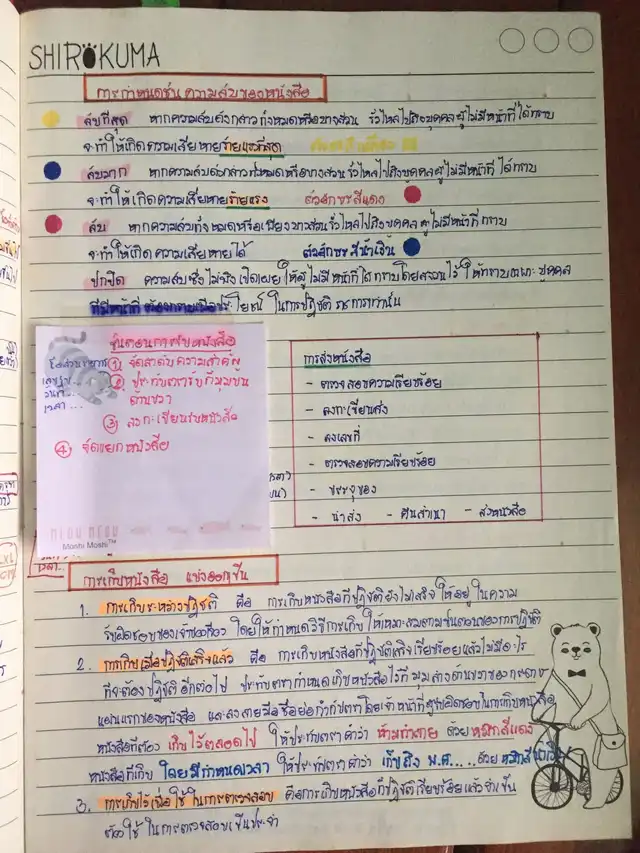 SHIROKUMA
การกำหนดชั้นความลับของหนังสือ
ลับที่สุด หากความลับดังกล่าวทั้งหมดหรือบางส่วน รั่วไหลไปถึงบุคคลผู้ไม่มีหน้าที่ได้ทราบ
จะทำให้เกิดความเสียหายร้ายแรงที่สุด
ลับมาก หากความลับดังกล่าวทั้งหมดหรือบางส่วนรั่วไหลไปถึงบุคคลผู้ไม่มีหน้าที่ได้ทราบ
จะทำให้เกิดความเสียหายร้ายแรง ตัวอักษรสีแดง
ลับ หากความลับทั้งหมดหรือเพียงบางส่วนรั่วไหลไปถึงบุคคลผู้ไม่มีหน้าที่ทราบ
จะทำให้เกิดความเสียหายได้ ตัวอักษรสีน้ำเงิน
ปกปิด ความลับซึ่งไม่พึงเปิดเผย ให้ผู้ไม่มีหน้าที่ได้ทราบโดยสงวนไว้ ให้ทราบเฉพาะ บุคคล
ที่มีหน้าที่ ต้องทราบเพื่อประโยชน์ ในการปฏิบัติ ราชการเท่านั้น
ขั้นตอนการรับหนังสือ
① จัดลำดับความสำคัญ
② ประทับตรารับที่มุมบน
ด้านขวา
③ ลงทะเบียนรับหนังสือ
④ จัดแยกหนังสือ
Moshi Moshi™
การส่งหนังสือ
- ตรวจสอบความเรียบร้อย
- ลงทะเบียนส่ง
- ลงเลขที่
- ตรวจสอบความเรียบร้อย
- บรรจุซอง
- นำส่ง - คืนสำเนา - ส่งหนังสือ
การเก็บหนังสือ แบ่งออกเป็น
1. การเก็บระหว่างปฏิบัติ คือ การเก็บหนังสือที่ปฏิบัติยังไม่เสร็จ ให้อยู่ในความ
รับผิดชอบของเจ้าของเรื่อง โดยให้กำหนดวิธีการเก็บให้เหมาะสมตามขั้นตอนของการปฏิบัติ
2. การเก็บเมื่อปฏิบัติเสร็จแล้ว คือ การเก็บหนังสือที่ปฏิบัติเสร็จเรียบร้อยแล้วไม่มีอะไร
ที่จะต้องปฏิบัติ อีกต่อไป ประทับตรากำหนดเก็บหนังสือไว้ที่มุมล่างด้านขวาของกระดาษ
แผ่นแรกของหนังสือ และลงลายมือชื่อย่อกำกับตราโดยเจ้าหน้าที่ผู้รับผิดชอบในการเก็บหนังสือ
หนังสือที่ต้อง เก็บไว้ตลอดไป ให้ประทับตรา คำว่า ห้ามทำลาย ด้วยหมึกสีแดง
หนังสือที่เก็บ โดยมีกำหนดเวลา ให้ประทับตรา คำว่า เก็บถึง พ.ศ..... ด้วย หมึกสีน้ำเงิน
3. การเก็บไว้เพื่อ ใช้ ในการตรวจสอบ คือการเก็บหนังสือที่ปฏิบัติเรียบร้อยแล้วจำเป็น
ต้องใช้ ในการตรวจสอบเป็นประจำ